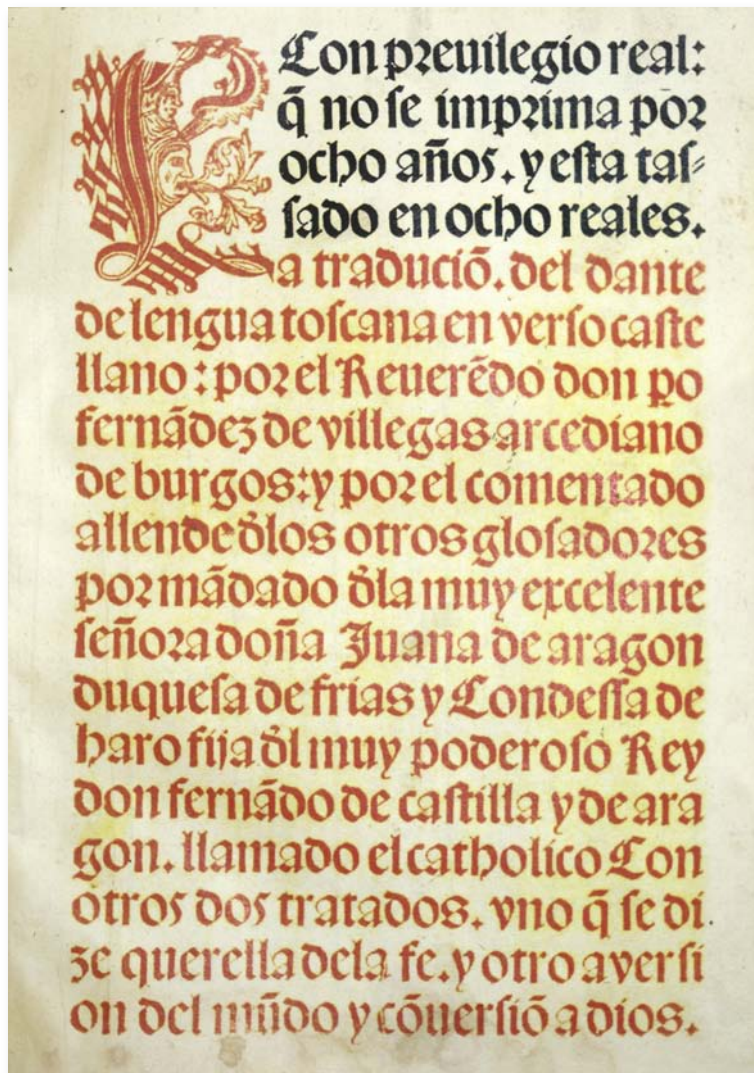 Con preuilegio real:
q̃ no se imprima por
ocho años. y esta tas⸗
sado en ocho reales.
La traduciõ. del dante
de lengua toscana en verso caste
llano : por el Reuerẽdo don p̱o
fernãdez de villegas arcediano
de burgos: y por el comentado
allende d̃los otros glosadores
por mãdado d̃la muy excelente
señora doña Juana de aragon
duquesa de frias y Condessa de
haro fija d̃l muy poderoso Rey
don fernãdo de castilla y de ara
gon. llamado el catholico Con
otros dos tratados. vno q̃ se di
ze querella dela fe. y otro aversi
on del mũdo y cõuersiõ a dios.